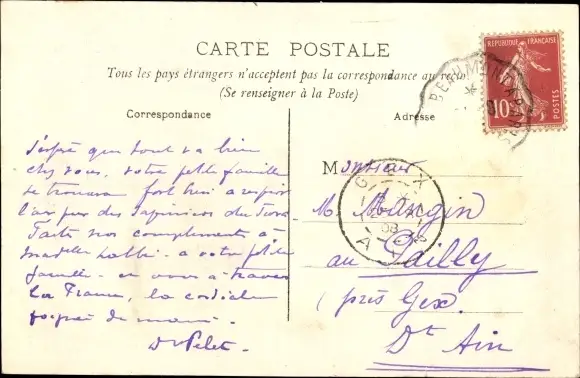 CARTE POSTALE
Tous les pays étrangers n'acceptent pas la correspondance au recto
(Se renseigner à la Poste)
Correspondance
Adresse
REPUBLIQUE FRANÇAISE
10
POSTES
BEAUMONT A PARIS
J'espère que tout va bien
chez vous, votre petite famille
se trouvera fort bien à respirer
l'air pur des Sapinières du Jura
Faites nos compliments à
à votre petite
famille - et vous à travers
la France, la cordiale
poignée de main.
Dr Pelet.
GEX
08
AIN
Monsieur
M. Mangin
au Pailly
(près Gex.
Dt Ain